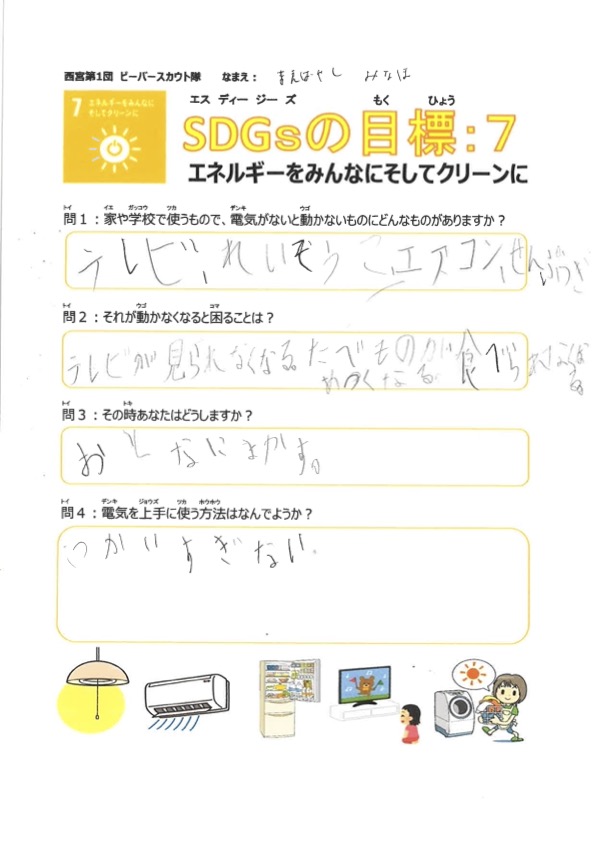 西宮第1団 ビーバースカウト隊 なまえ： まえばやし みなほ
7 エネルギーをみんなに
そしてクリーンに
エス ディー ジー ズ もく ひょう
SDGsの目標：7
エネルギーをみんなにそしてクリーンに
トイ イエ ガッコウ ツカ デンキ ウゴ
問1：家や学校で使うもので、電気がないと動かないものにどんなものがありますか？
テレビ、れいぞうこ、エアコン、せんぷうき
トイ ウゴ コマ
問2：それが動かなくなると困ることは？
テレビが見られなくなる たべものが食べられなくなる
あつくなる
トイ トキ
問3：その時あなたはどうしますか？
おとなにまかす。
トイ デンキ ジョウズ ツカ ホウホウ
問4：電気を上手に使う方法はなんでようか？
つかいすぎない。